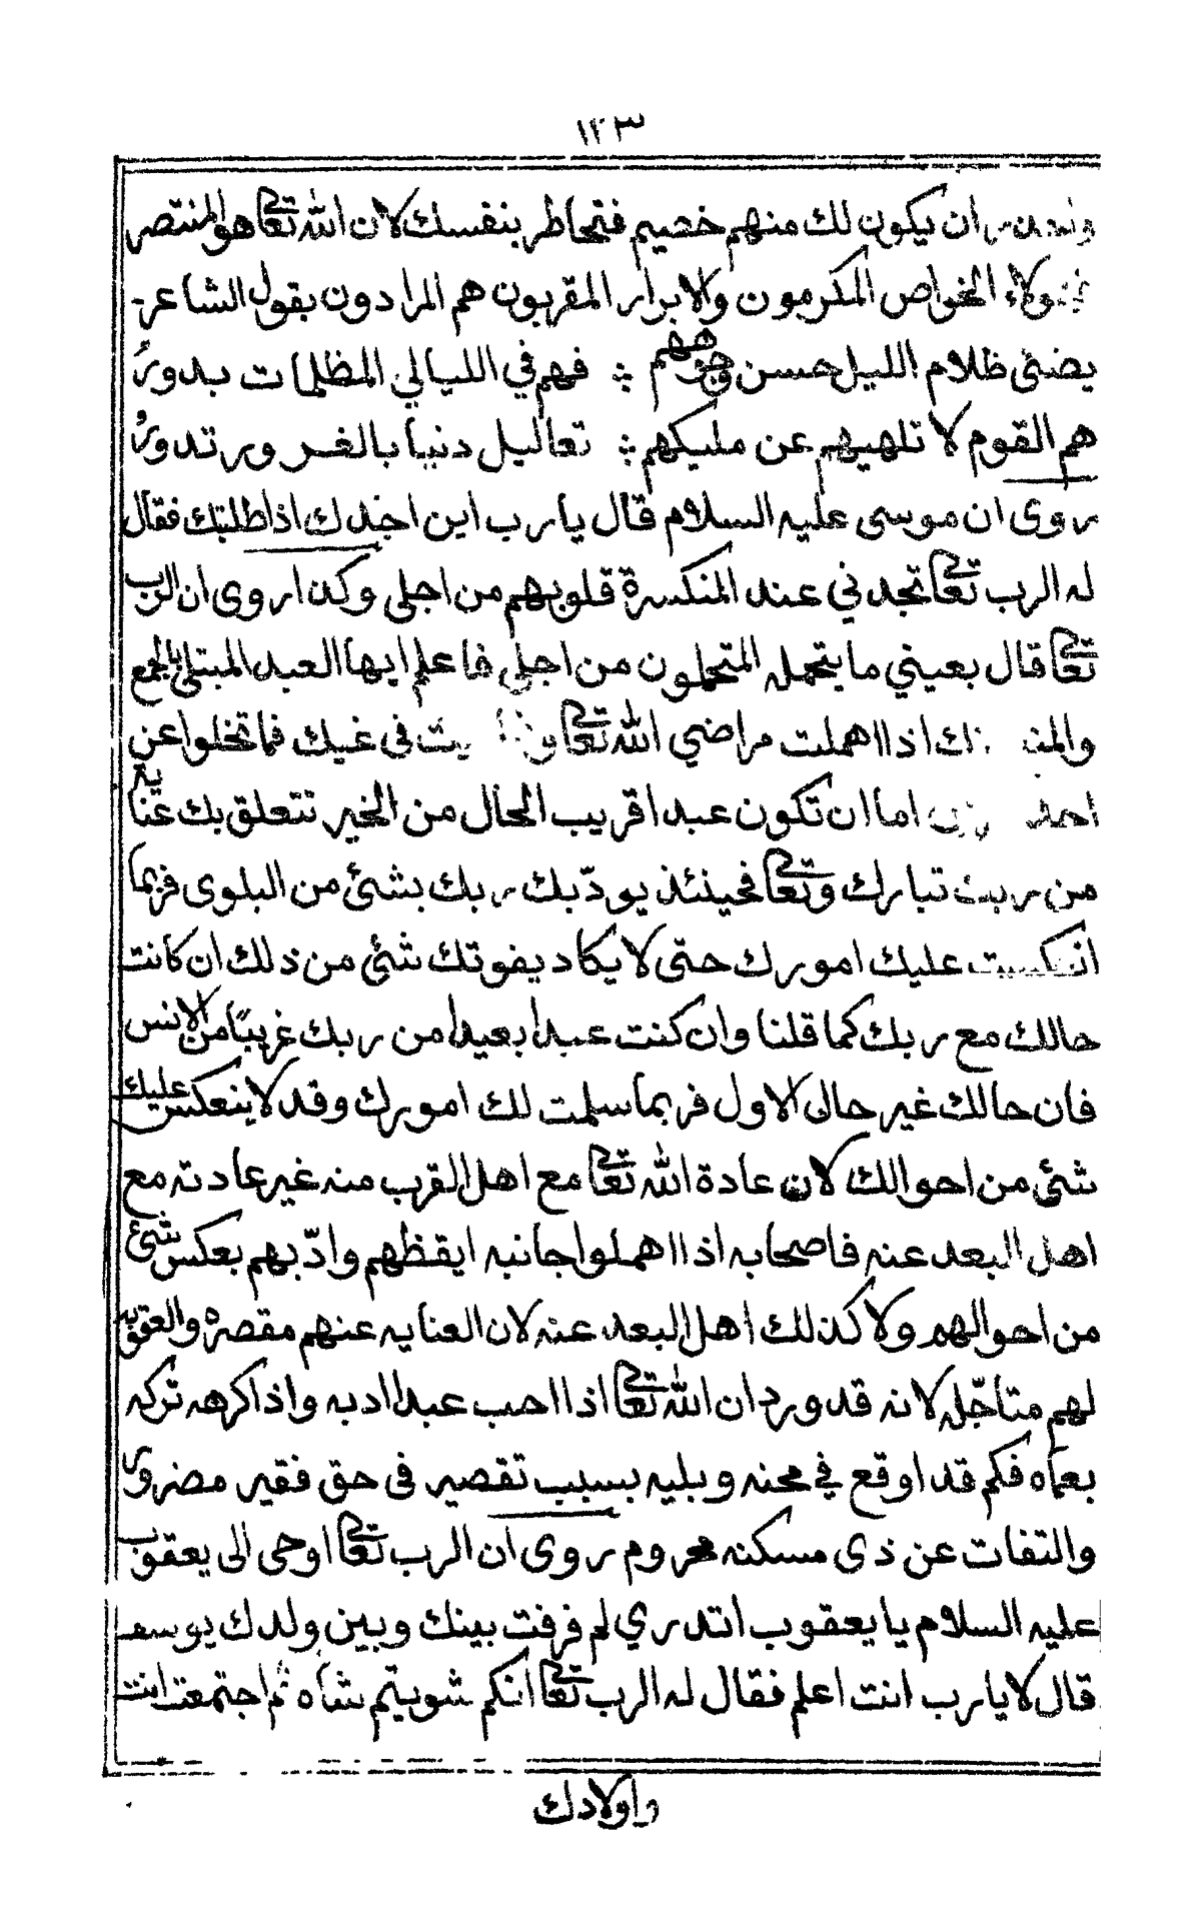 ١٢٣
ان يكون لك منهم خصيم فتخاطر بنفسك لان الله تعا هو المنتصر
الخواص المكرمون والابرار المقربون هم المرادون بقول الشاعر
يضئ ظلام الليل حسن وجوههم ؛ فهم في الليالي المظلمات بدورُ
هم القوم لا تلهيهم عن مليكهم ؛ تعاليل دنيا بالغرور تدورُ
روى ان موسى عليه السلام قال يا رب اين اجدك اذا طلبتك فقال
له الرب تعا تجدني عند المنكسرة قلوبهم من اجلى وكذا روى ان الرب
تعا قال بعيني ما يتحمله المتحملون من اجلي فاعلم ايها العبد المبتلى بالجمع
اذا اهملت مراضي الله تعا فى غيك فما تخلوا عن
اما ان تكون عبدا قريب الحال من الخير تتعلق بك عناية
من ربك تبارك وتعا فحينئذ يودّبك ربك بشئ من البلوى فربما
انعكست عليك امورك حتى لا يكاد يفوتك شئ من ذلك ان كانت
حالك مع ربك كما قلنا وان كنت عبدا بعيدا من ربك غريبًا من الانس
فان حالك غير حال الاول فربما سلمت لك امورك وقد لا ينعكس عليك
شئ من احوالك لان عادة الله تعا مع اهل القرب منه غير عادته مع
اهل البعد عنه فاصحابه اذا اهملوا جانبه ايقظهم وادّبهم بعكس شئ
من احوالهم ولا كذلك اهل البعد عنه لان العنايه عنهم مقصره والعقوبه
لهم متاجّله لانه قد ورد ان الله تعا اذا احب عبدا ادبه واذا كرهه تركه
بعماه فكم قد اوقع في محنه وبليه بسبب تقصير فى حق فقير مضرور
والتفات عن ذى مسكنه محروم روى ان الرب تعا اوحى الى يعقوب
عليه السلام يا يعقوب اتدري لم فرقت بينك وبين ولدك يوسف
قال لا يا رب انت اعلم فقال له الرب تعا انكم شويتم شاه ثم اجتمعت انت
واولادك